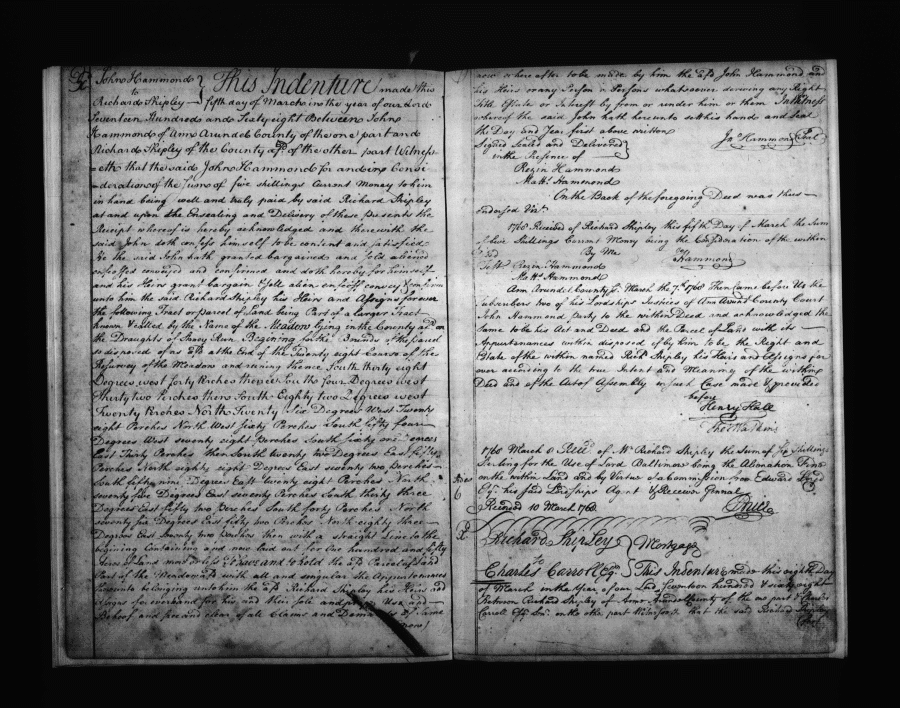 John Hammond
to
Richard Shipley
This Indenture made this
fifth day of March in the year of our Lord
Seventeen Hundred and Sixty eight Between John
Hammond of Ann Arundel County of the one part and
Richard Shipley of the County afsd. of the other part Witness
=eth that the said John Hammond for and in Consi
=deration of the sum of five shillings Current Money to him
in hand being well and truly paid by said Richard Shipley
at and upon the Ensealing and Delivery of these presents the
Receipt whereof is hereby acknowledged and therewith the
said John doth confess himself to be content and satisfied
He the said John hath granted bargained and sold aliened
enfeoffed conveyed and confirmed and doth hereby for himself
and his Heirs grant bargain sell alien enfeoff convey & confirm
unto him the said Richard Shipley his Heirs and Assigns forever
the following Tract or parcel of Land being Part of a larger Tract
known & called by the Name of the Meadow lying in the County afsd. on
the Draughts of Run Begining for the Bounds of the parcel
so disposed of as afsd. at the End of the Twenty eight Course of the
Resurvey of the Meadow and runing thence South thirty eight
Degrees west forty Perches thence South four Degrees west
thirty two Perches then South Eighty two Degrees west
Twenty Perches North Twenty six Degrees West Twenty
eight Perches North West sixty Perches South fifty four
Degrees West seventy eight Perches South sixty one Degrees
East Thirty Perches then South twenty two Degrees East fifty
Perches North eighty eight Degrees East seventy two Perches
South fifty nine Degrees East twenty eight Perches North
seventy five Degrees East seventy Perches South thirty three
Degrees East fifty two Perches South forty Perches North
seventy six Degrees East fifty two Perches North eighty three
Degrees East Seventy two Perches then with a straight Line to the
begining Containing and now laid out for One hundred and fifty
Acres of Land more or less To have and to hold the afsd. Parcel of Land
Part of the Meadow with all and singular the Appurtenances
thereunto belonging unto him the afsd. Richard Shipley his Heirs and
Assigns for ever and for his and their sole and Use and
Behoof and free and clear of all Claims and
now
now or hereafter to be made by him the afsd. John Hammond and
his Heirs or any Person or Persons whatsoever deriving any Right
Title Estate or Interest by from or under him or them In Witness
whereof the said John hath hereunto set his hand and seal
the Day and Year first above written
Jno. Hammond Seal
Signed Sealed and Delivered
in the Presence of
Rezin Hammond
Matt. Hammond
On the Back of the foregoing Deed was thus
endorsed Vizt.
1768 Received of Richard Shipley this fifth Day of March the Sum
of five Shillings Current Money being the Consideration of the within
By Me Jno. Hammond
Test. Rezin Hammond
Matt. Hammond
Ann Arundel County ss. March the 7th. 1768 Then came before Us the
Subscribers two of his Lordships Justices of Ann Arundel County Court
John Hammond party to the within Deed and acknowledged the
Same to be his Act and Deed and the Parcel of Land with its
Appurtenances within disposed of by him to be the Right and
Estate of the within named Richd. Shipley his Heirs and Assigns for
ever according to the true Intent and Meaning of the within
Deed and of the Act of Assembly in such Case made & provided
before
Henry Hall
Thos. Watkins
1768 March 8 Recd. of Mr. Richard Shipley the Sum of Six Shillings
Sterling for the Use of Lord Baltimore being the Alienation Fine
on the within Land and by Virtue of a Commission from Edward Lloyd
Esqr. his said Lordships Agent & Receiver General
Received 10 March 1768
Richard Shipley
to
Charles Carroll Esqr.
Mortgage
This Indenture made this eighth Day
of March in the Year of our Lord Seventeen hundred & sixty eight
Between Richard Shipley of Ann Arundel County of the one part & Charles
Carroll Esqr. Senr. on the other part Witnesseth that the said Richard Shipley